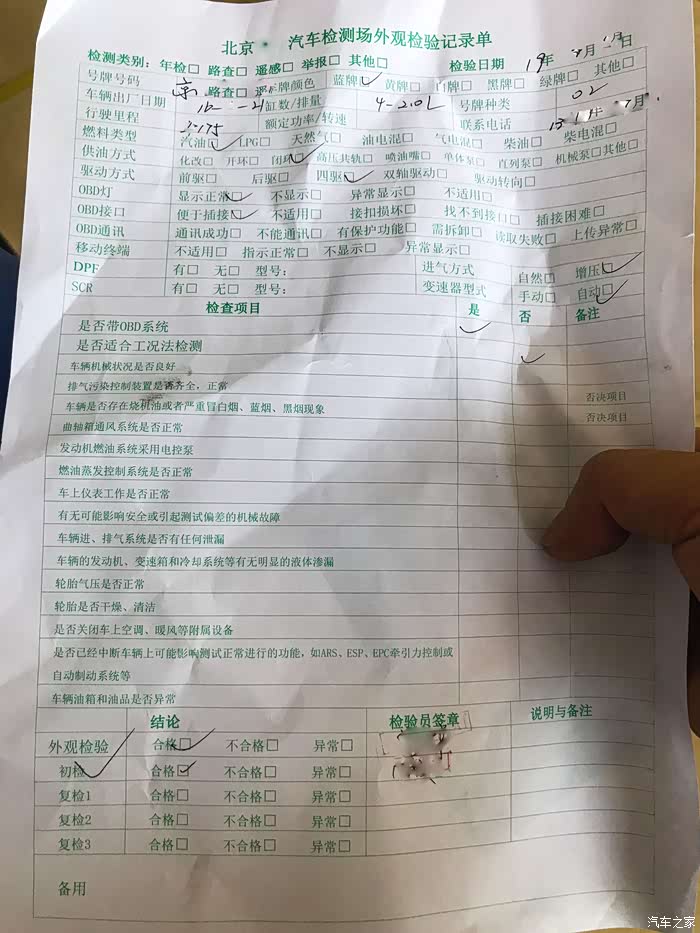 北京 汽车检测场外观检验记录单
检测类别: 年检□ 路查□ 遥感□ 举报□ 其他□ 检验日期 19年 月 日
号牌号码 京 路查□ 牌颜色 蓝牌☑ 黄牌□ 白牌□ 黑牌□ 绿牌□ 其他□
车辆出厂日期 缸数/排量 4-2.0L 号牌种类 02
行驶里程 额定功率/转速 联系电话
燃料类型 汽油☑ LPG□ 天然气□ 油电混□ 气电混□ 柴油□ 柴电混□
供油方式 化改□ 开环□ 闭环☑ 高压共轨□ 喷油嘴□ 单体泵□ 直列泵□ 机械泵□其他□
驱动方式 前驱□ 后驱□ 四驱☑ 双轴驱动□ 驱动转向□
OBD灯 显示正常☑ 不显示□ 异常显示□ 不适用□
OBD接口 便于插接☑ 不适用□ 接扣损坏□ 找不到接口□ 插接困难□
OBD通讯 通讯成功□ 不能通讯□ 有保护功能□ 需拆卸□ 读取失败□ 上传异常□
移动终端 不适用□ 指示正常□ 不显示□ 异常显示□
DPF 有□ 无□ 型号: 进气方式 自然□ 增压☑
SCR 有□ 无□ 型号: 变速器型式 手动□ 自动☑
检查项目 是 否 备注
是否带OBD系统 ✓
是否适合工况法检测 ✓
车辆机械状况是否良好
排气污染控制装置是否齐全，正常 否决项目
车辆是否存在烧机油或者严重冒白烟、蓝烟、黑烟现象 否决项目
曲轴箱通风系统是否正常
发动机燃油系统采用电控泵
燃油蒸发控制系统是否正常
车上仪表工作是否正常
有无可能影响安全或引起测试偏差的机械故障
车辆进、排气系统是否有任何泄漏
车辆的发动机、变速箱和冷却系统等有无明显的液体渗漏
轮胎气压是否正常
轮胎是否干燥、清洁
是否关闭车上空调、暖风等附属设备
是否已经中断车辆上可能影响测试正常进行的功能，如ARS、ESP、EPC牵引力控制或
自动制动系统等
车辆油箱和油品是否异常
结论 检验员签章 说明与备注
外观检验 合格☑ 不合格□ 异常□
初检 合格☑ 不合格□ 异常□
复检1 合格□ 不合格□ 异常□
复检2 合格□ 不合格□ 异常□
复检3 合格□ 不合格□ 异常□
备用
汽车之家